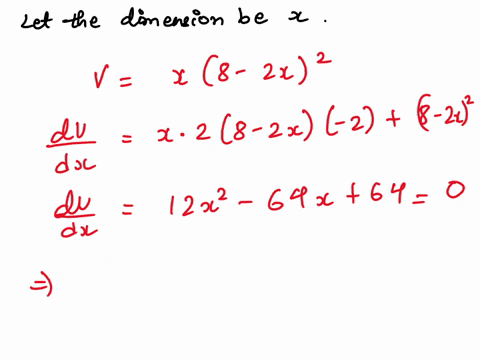 Let the dimension be x.
V = x (8 - 2x)²
dV/dx = x · 2 (8 - 2x) (-2) + (8 - 2x)²
dV/dx = 12x² - 64x + 64 = 0
⇒